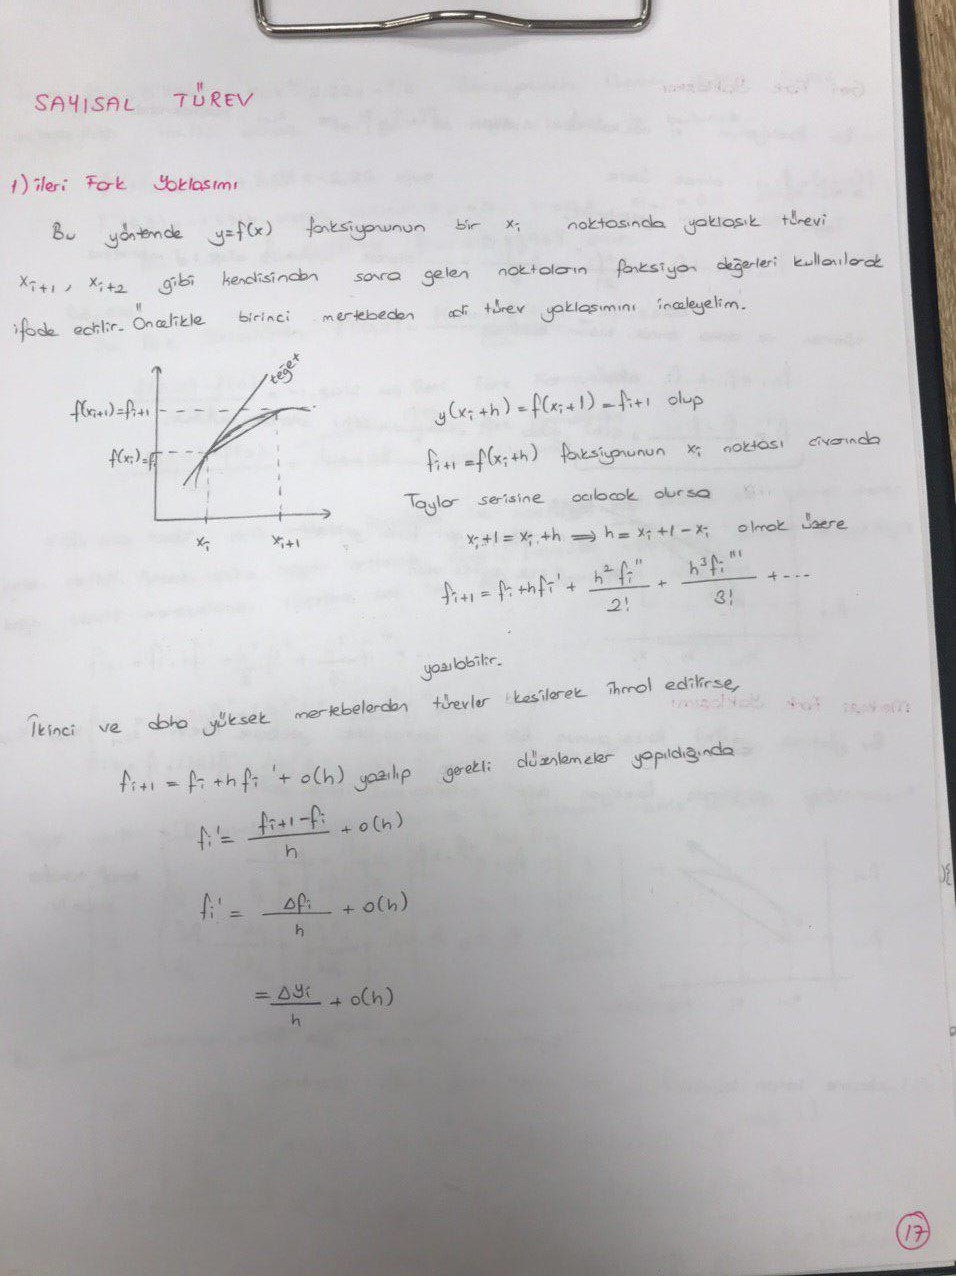 SAYISAL TÜREV
1) ileri Fark Yaklasımı
Bu yöntemde y=f(x) fonksiyonunun bir xᵢ noktasında yaklaşık türevi
xᵢ₊₁, xᵢ₊₂ gibi kendisinden sonra gelen noktaların fonksiyon değerleri kullanılarak
ifade edilir. Öncelikle birinci mertebeden adi türev yaklaşımını inceleyelim.
teğet
f(xᵢ₊₁)=fᵢ₊₁
f(xᵢ)=f
xᵢ xᵢ₊₁
y(xᵢ+h)=f(xᵢ+1)=fᵢ₊₁ olup
fᵢ₊₁=f(xᵢ+h) fonksiyonunun xᵢ noktası civarında
Taylor serisine acılacak olursa
xᵢ+1=xᵢ+h ⟹ h=xᵢ+1-xᵢ olmak üzere
fᵢ₊₁=fᵢ+hfᵢ' + h²fᵢ''/2! + h³fᵢ'''/3! + ---
yazılabilir.
İkinci ve daha yüksek mertebelerden türevler kesilerek ihmal edilirse,
fᵢ₊₁ = fᵢ +hfᵢ' + o(h) yazılıp gerekli düzenlemeler yapıldığında
fᵢ' = fᵢ₊₁-fᵢ/h + o(h)
fᵢ' = Δfᵢ/h + o(h)
= Δyᵢ/h + o(h)
17